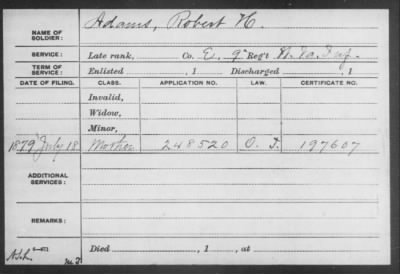 NAME OF SOLDIER: Adams, Robert H.
SERVICE: Late rank, Co. E, 9" Reg't W. Va. Inf.
TERM OF SERVICE: Enlisted , 1 Discharged , 1
DATE OF FILING. CLASS. APPLICATION NO. LAW. CERTIFICATE NO.
Invalid,
Widow,
Minor,
1879 July 18 Mother 248520 O. L. 197607
ADDITIONAL SERVICES:
REMARKS:
Died , 1 , at